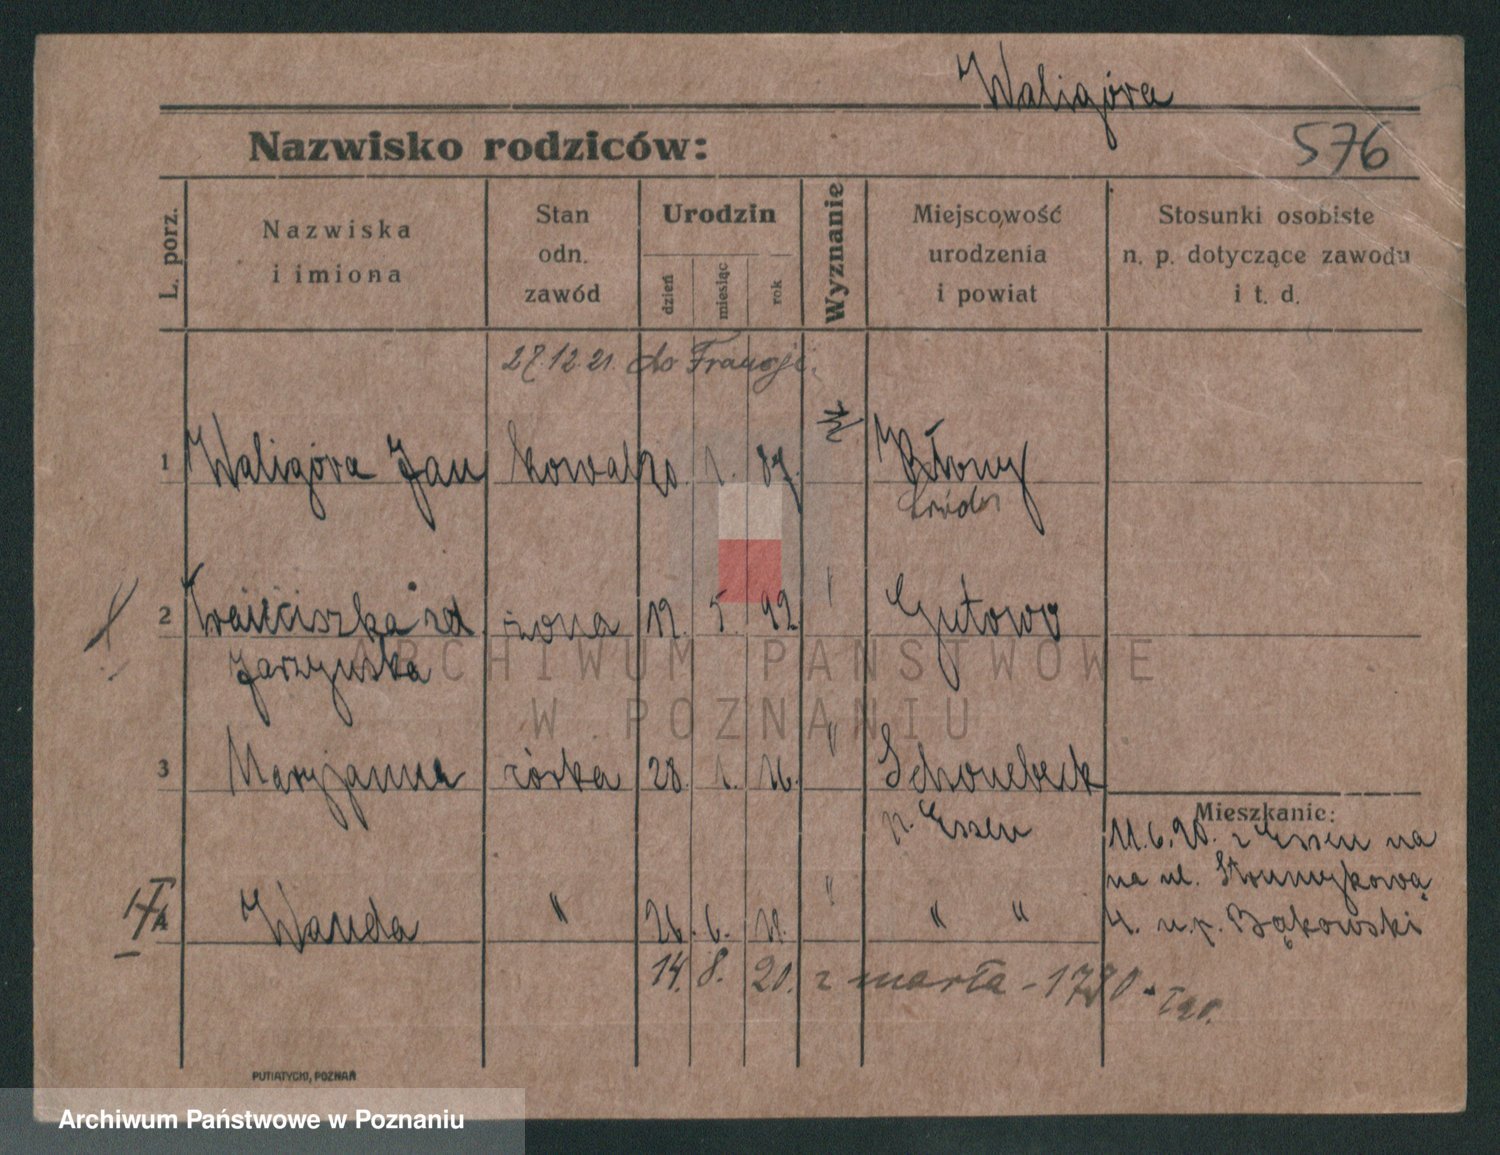 Waligóra
Nazwisko rodziców:
576
L. porz.
Nazwiska
i imiona
Stan
odn.
zawód
Urodzin
dzień
miesiąc
rok
Wyznanie
Miejscowość
urodzenia
i powiat
Stosunki osobiste
n. p. dotyczące zawodu
i t. d.
27.12.21. do Francji.
1 Waligóra Jan kowal 20. 1. 87. Błony
2 Franciszka zd żona 19. 5. 92 Gutowo
Jarzyńska
ARCHIWUM PAŃSTWOWE
W POZNANIU
3 Maryjanna córka 28. 1. 16. " Schonebeck
p. Essen
Mieszkanie:
11.6.20. z Essen na
na ul. Strumykową
4. u. p. Bąkowski
4 Wanda " 26. 6. 19. " " "
14. 8. 20. zmarła - 1780
PUTIATYCKI, POZNAŃ
Archiwum Państwowe w Poznaniu